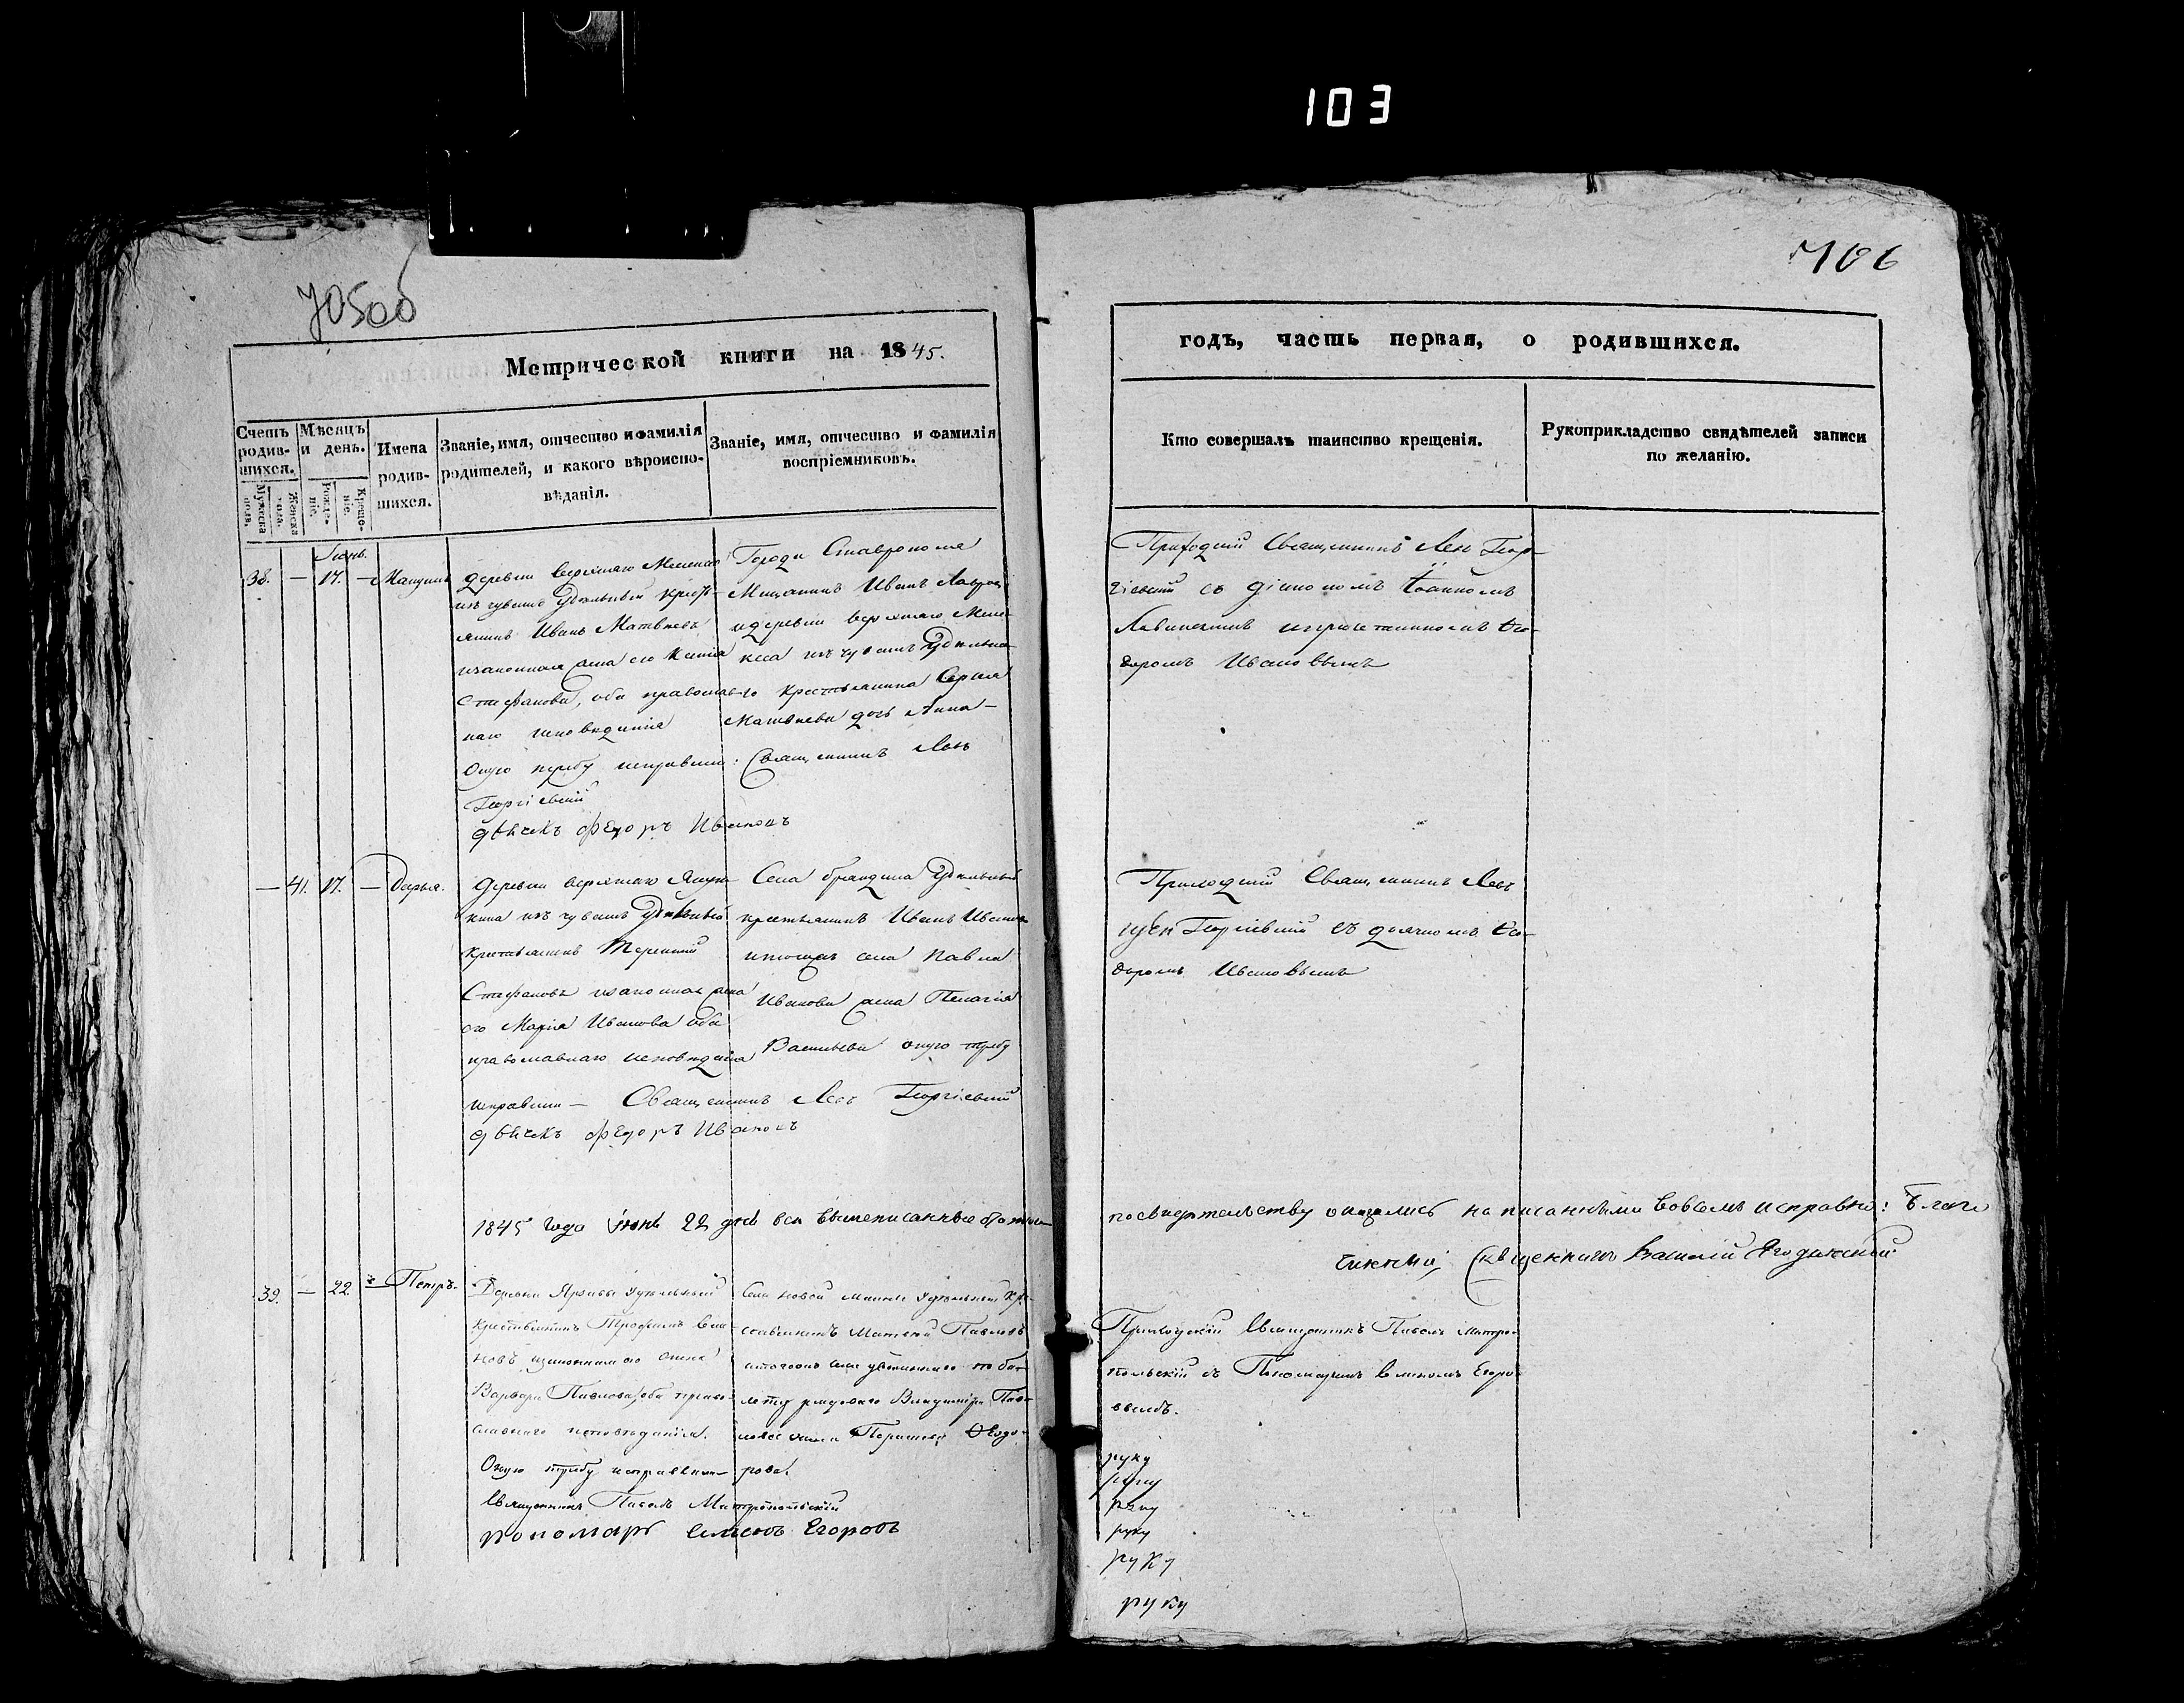 103
705об
706
Метрической книги на 1845.
годъ, часть первая, о родившихся.
Счетъ родив-шихся.
Мужеска пола.
Женска пола.
Мѣсяцъ и день.
Рожде-нiе.
Креще-нiе.
Имена родив-шихся.
Званiе, имя, отчество и фамилiя
родителей, и какого вѣроиспо-
вѣданiя.
Званiе, имя, отчество и фамилiя
воспрiемниковъ.
Кто совершалъ таинство крещенiя.
Рукоприкладство свидѣтелей записи
по желанiю.
Iюнь.
38. — 17. —
деревни верхняго
изъ чувашъ удѣльный кресть-
янинъ Иванъ Матвѣевъ
изаконная жена его Ксенiя
Стефанова, оба православ-
наго исповѣданiя
Оную требу исправили: Священникъ Левъ
Георгiевскiй
дьячекъ Федоръ Ивановъ
Города Ставрополя
Мещанинъ Иванъ
идеревни верхняго Меле-
кеса изъ чувашъ удѣльна-
го крестьянина Сергѣя
Матвѣева дочь Анна —
Приходскiй Священникъ Левъ Геор-
гiевскiй съ дiакономъ Iоанномъ
Ѳео-
доромъ Ивановымъ
— 41. 17. — Дарья.
деревни верхняго Якуш-
кина изъ чувашъ удѣльный
крестьянинъ Терентiй
Стефановъ изаконная жена
его Марiя Иванова оба
православнаго исповѣданiя
исправили — Священникъ Левъ Георгiевскiй
дьячекъ Федоръ Ивановъ
Села удѣльный
крестьянинъ Иванъ Ивановъ
итогожъ села Павла
Иванова жена Пелагiя
Васильева оную требу
Приходскiй Священникъ Левъ
Георгiевскiй съ дьячкомъ Ѳео-
доромъ Ивановымъ
1845 года Iюнь 22 дня все вышеписанные
посвидетельству оказались написанными вовсемъ исправно: Благо
чинный, Священникъ Василiй Ягодинскiй
39. — 22 Петръ.
Деревни удѣльный
крестьянинъ Трофимъ
новъ изаконная его жена
Варвара Павлова, оба право-
славнаго исповѣданiя.
Оную требу исправили
Священникъ Павелъ Митропольскiй
пономарь Симеонъ Егоровъ
Села новой удѣльный кр-
естьянинъ Матвей Павловъ
рядоваго Владимiра Пав-
лова жена Ѳеодо-
рова.
Приходскiй Священникъ Павелъ Митро-
польскiй съ Пономаремъ Егоро-
вымъ.
руку
руку
руку
руку
руку
руку